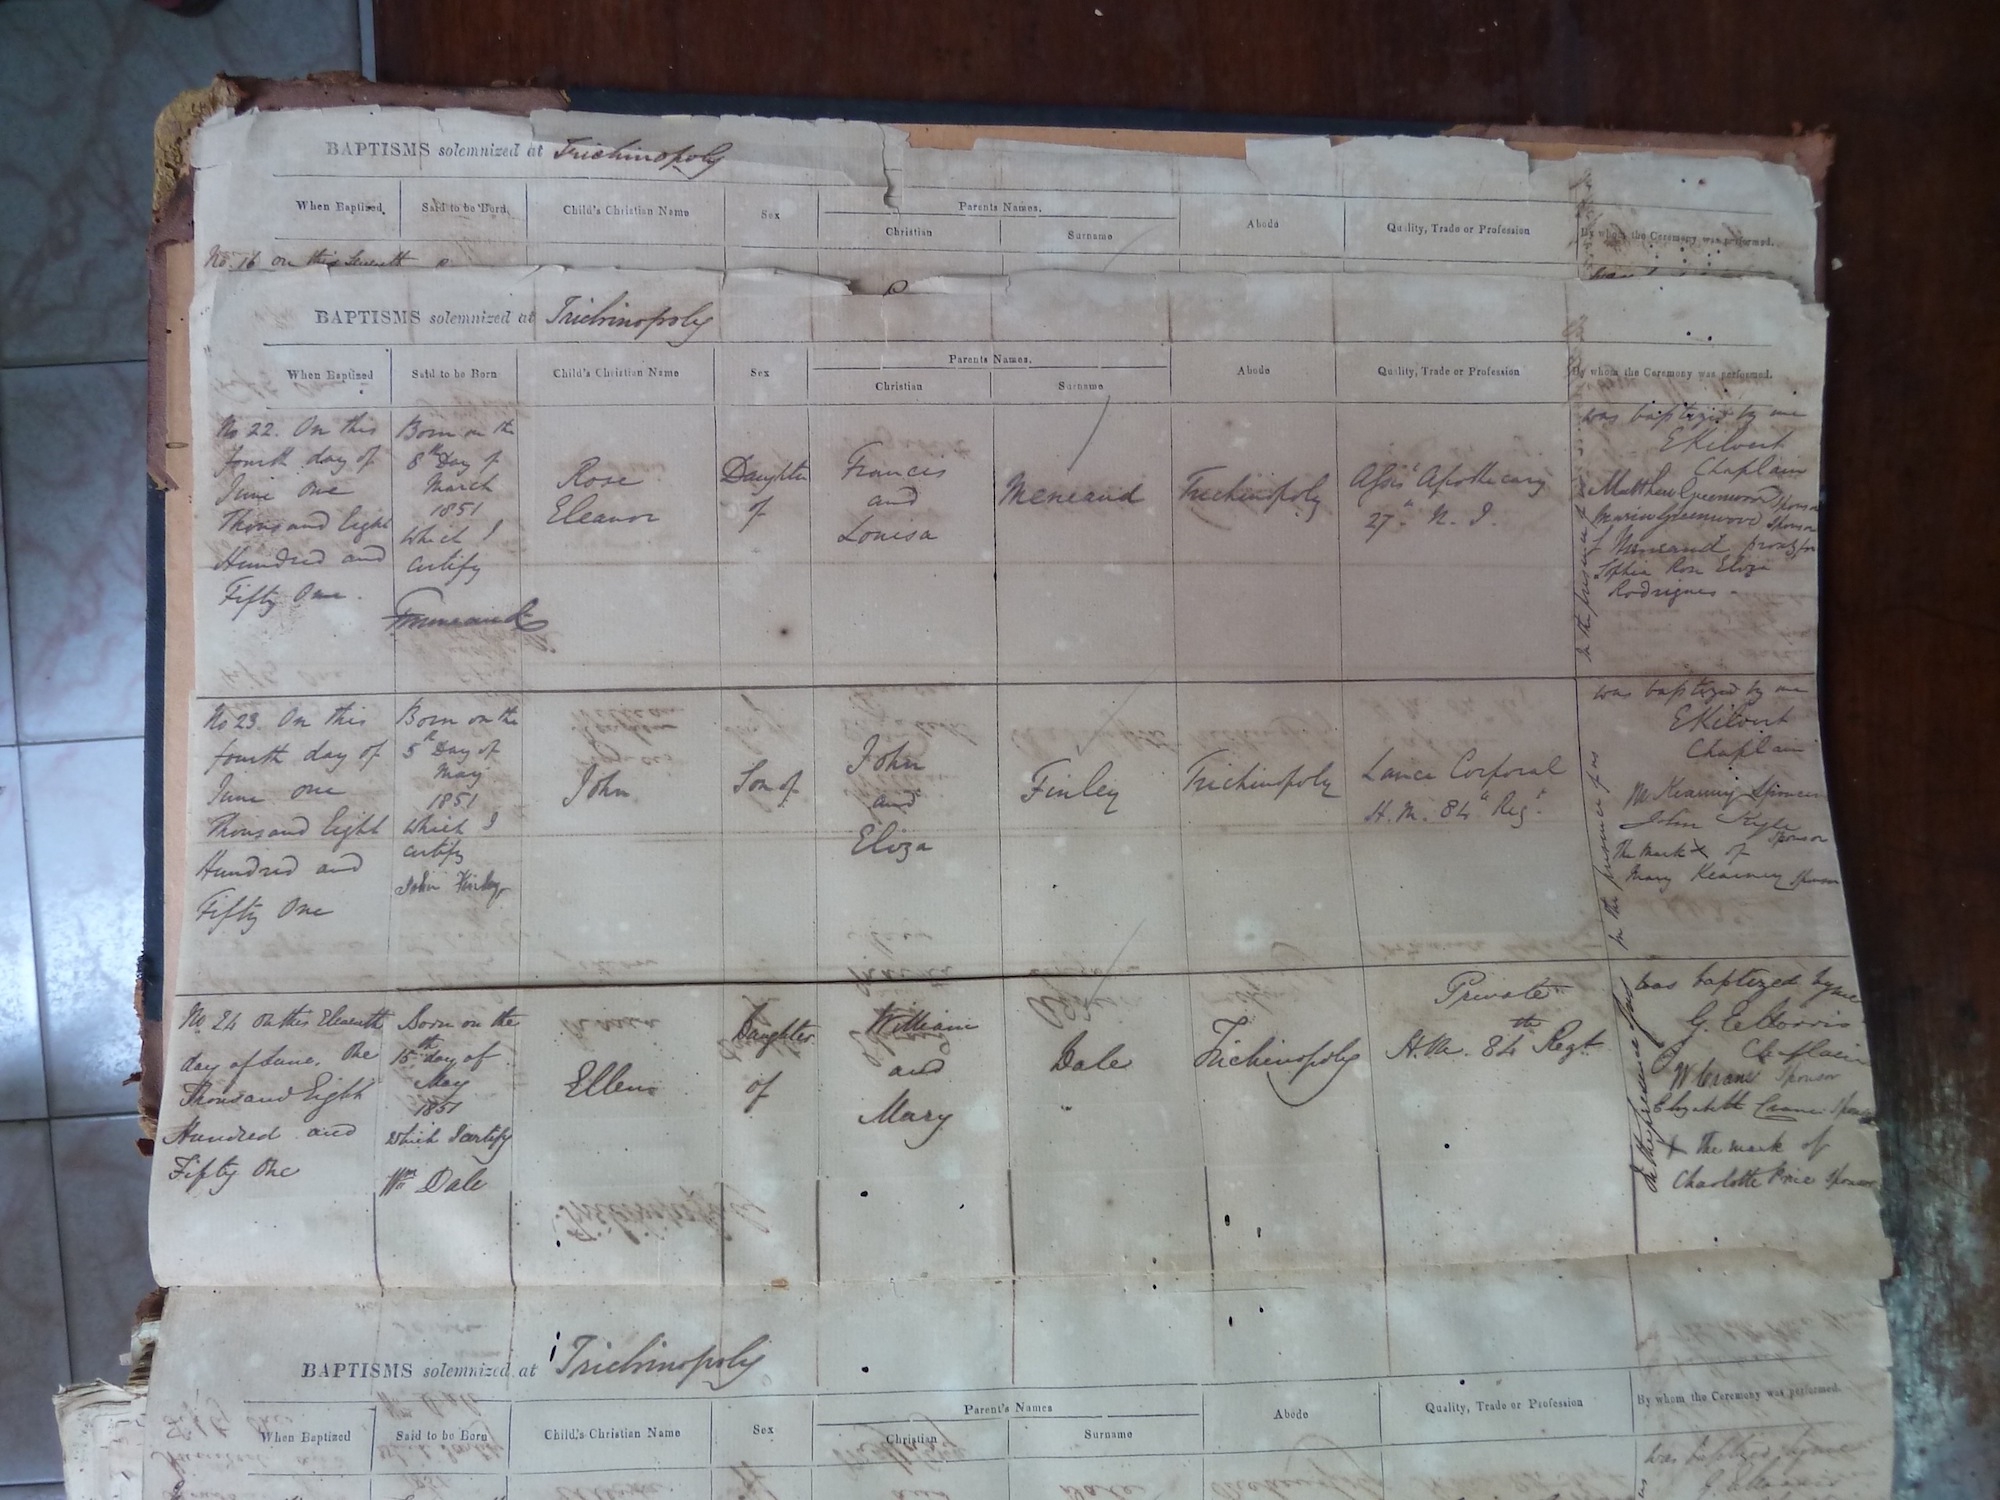 BAPTISMS solemnized at Trichinopoly
When Baptized
Said to be Born
Child's Christian Name
Sex
Parents Names.
Christian
Surname
Abode
Quality, Trade or Profession
By whom the Ceremony was performed.
No. 16 on this Seventh
BAPTISMS solemnized at Trichinopoly
When Baptized
Said to be Born
Child's Christian Name
Sex
Parents Names.
Christian
Surname
Abode
Quality, Trade or Profession
By whom the Ceremony was performed.
No 22. On this
fourth day of
June one
Thousand Eight
Hundred and
Fifty One.
Born on the
8th Day of
March
1851
which I
certify
Rose
Eleanor
Daughter
of
Francis
and
Louisa
Meneaud
Trichinopoly
Assist Apothecary
27th N. I.
was baptized by me
E Kilvert
Chaplain
Matthew Greenwood Sponsor
Maria Greenwood Sponsor
Meneaud proxy for
Sophia Rose Eliza
Rodrigues
In the presence of us
No 23. On this
fourth day of
June one
Thousand Eight
Hundred and
Fifty One
Born on the
5th Day of
May
1851
which I
certify
John Finley
John
Son of
John
and
Eliza
Finley
Trichinopoly
Lance Corporal
H.M. 84th Regt
was baptized by me
E Kilvert
Chaplain
M Kearney Sponsor
John Sponsor
The mark X of
Mary Kearney Sponsor
In the presence of us
No 24 On this Eleventh
day of June, One
Thousand Eight
Hundred and
Fifty One
Born on the
15th day of
May
1851
which I certify
Wm Dale
Ellen
Daughter
of
William
and
Mary
Dale
Trichinopoly
Private
H.M. 84th Regt
was baptized by me
G. E. Morris
Chaplain
W Crane Sponsor
Elizabeth Crane Sponsor
X the mark of
Charlotte Price Sponsor
In the presence of us
BAPTISMS solemnized at Trichinopoly
When Baptized
Said to be Born
Child's Christian Name
Sex
Parent's Names
Christian
Surname
Abode
Quality, Trade or Profession
By whom the Ceremony was performed.
was baptized by me